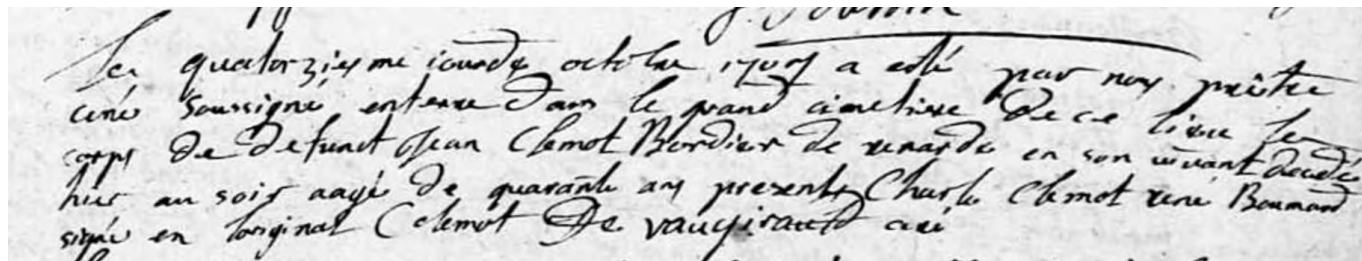 Le quatorziesme jour d'octobre 1707 a esté par nous prêtre
curé soussigné enterré dans le grand cimetiere de ce lieu le
corps de defunct Jean Clemot Bordier de renarde en son vivant decedé
hier au soir aagé de quarante ans presents Charle Clemot rené Boumard
signé en loriginal C clemot De vaugirauld curé